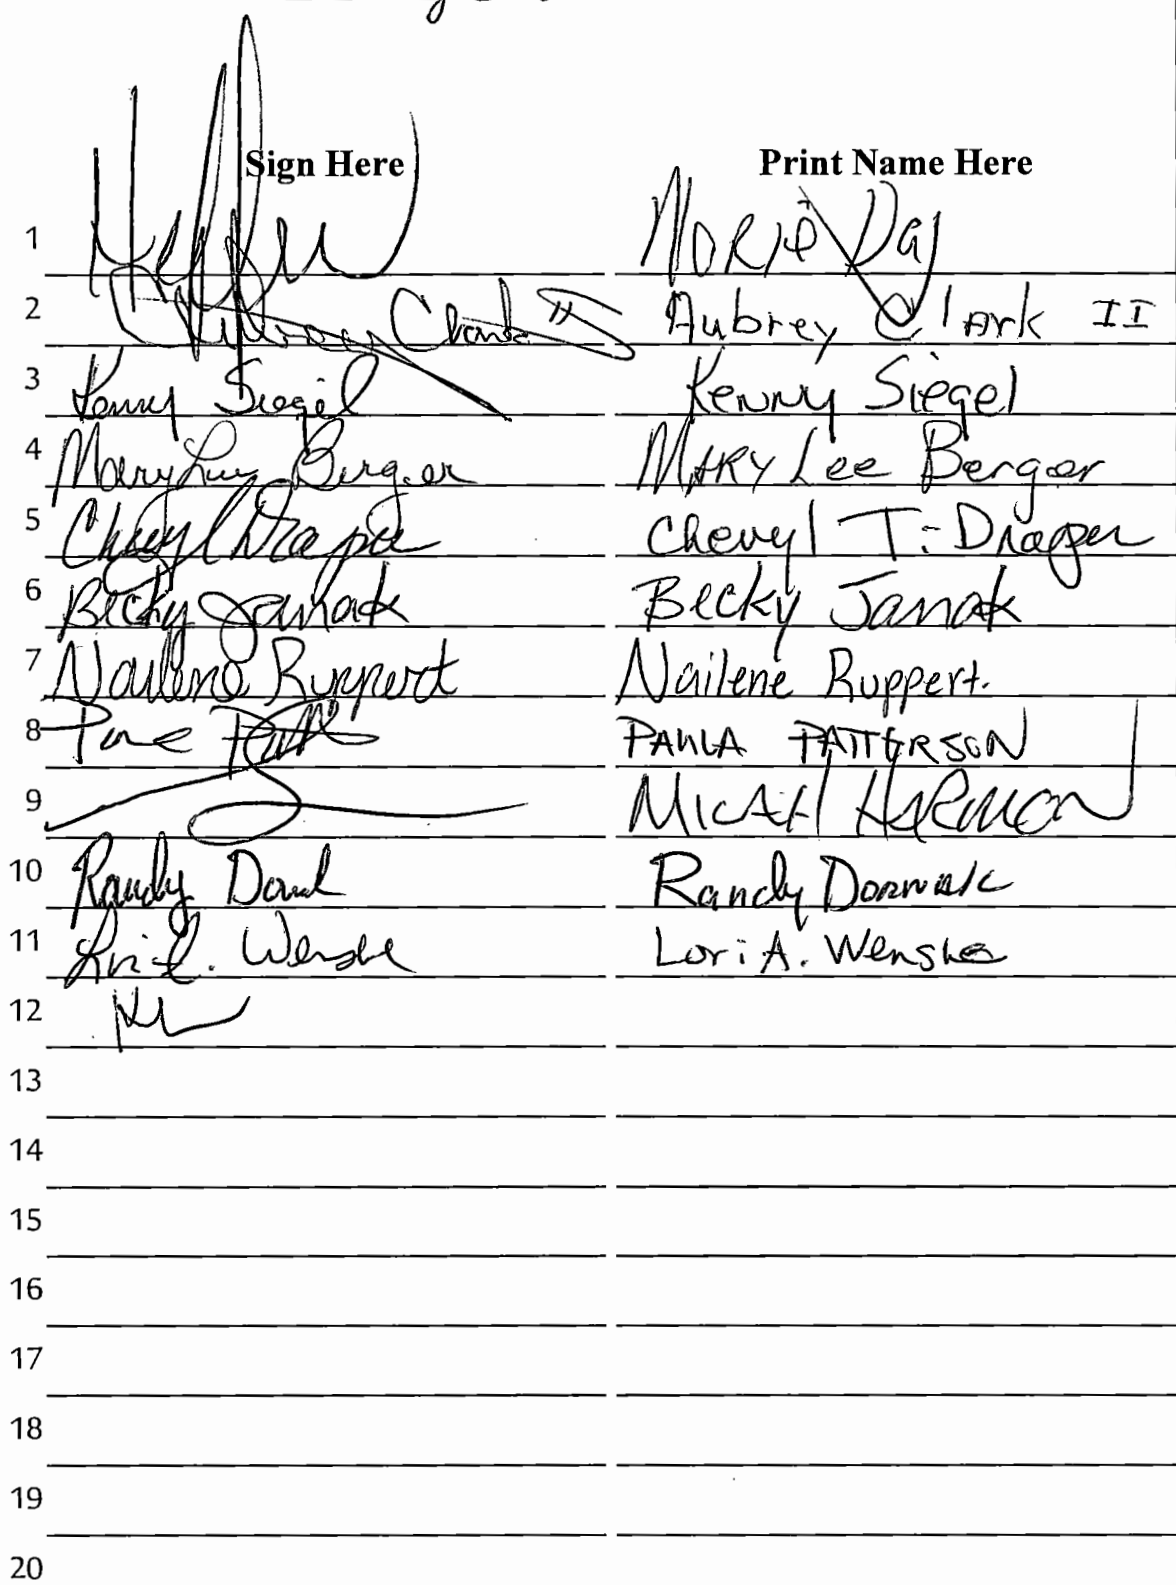 Sign Here Print Name Here
1 Day
2 Aubrey Clark II Aubrey Clark II
3 Kenny Siegel Kenny Siegel
4 Mary Lee Berger Mary Lee Berger
5 Cheryl Draper Cheryl T. Draper
6 Becky Janak Becky Janak
7 Nailene Ruppert Nailene Ruppert.
8 PAULA PATTERSON
9 MICAH HARMON
10 Randy Randy
11 Lori A. Wenske Lori A. Wenske
12
13
14
15
16
17
18
19
20